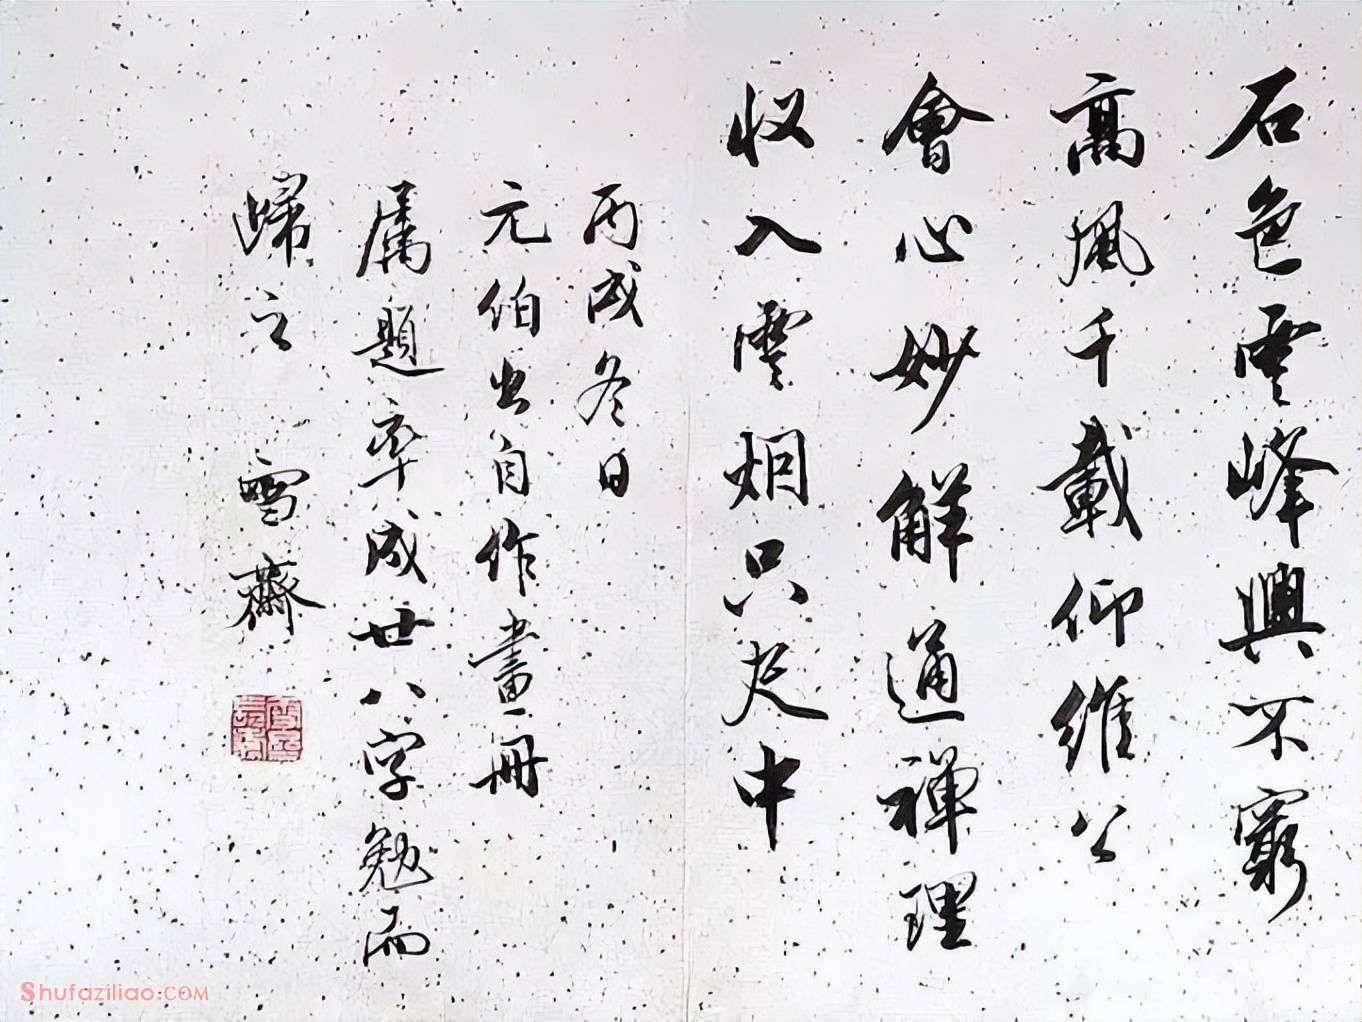 石色雲峰興不窮
高風千載仰維公
會心妙解通禪理
収入雲烟只尺中
丙戌冬日
元伯出自作畫冊
属題率成廿八字勉而
歸之 雪齋
Shufaziliao.COM